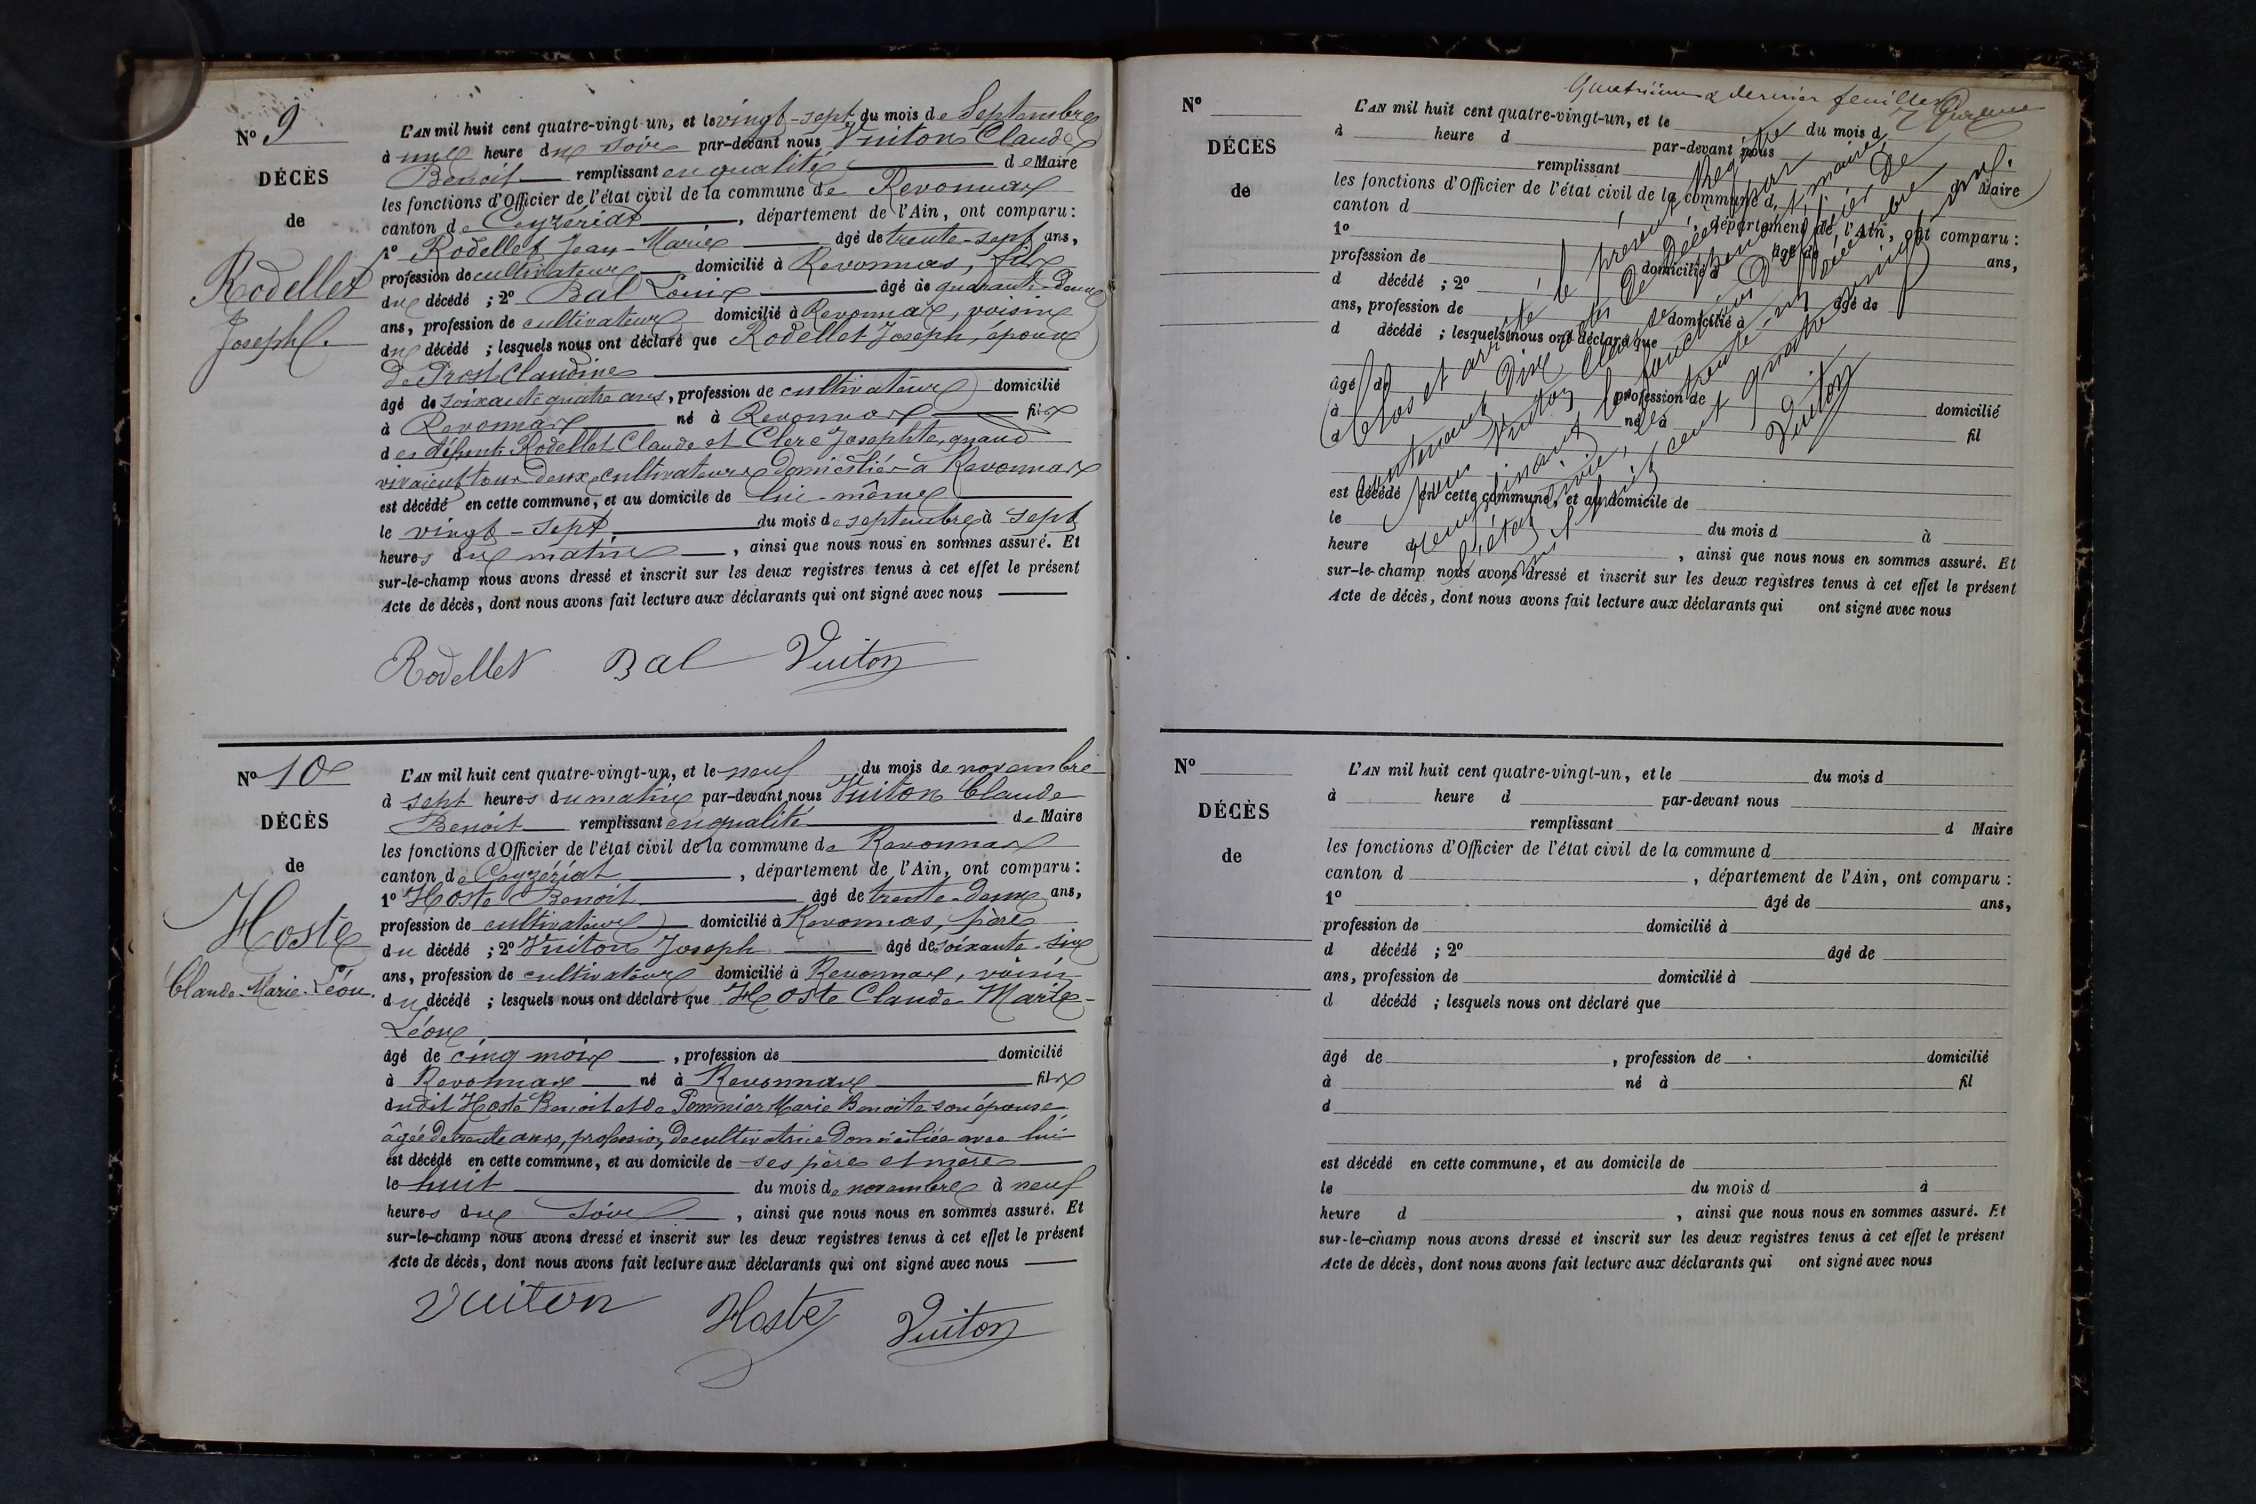 N° 9
DÉCÈS
de
Rodellet
Joseph.
L'AN mil huit cent quatre-vingt-un, et le vingt-sept du mois de Septembre
à une heure du soir par-devant nous Vuiton Claude
Benoit remplissant en qualité de Maire
les fonctions d'Officier de l'état civil de la commune de Revonnas
canton de Ceyzériat, département de l'Ain, ont comparu:
1° Rodellet Jean-Marie âgé de trente-sept ans,
profession de cultivateur domicilié à Revonnas, fils
du décédé ; 2° Bal Louis âgé de quarante-deux
ans, profession de cultivateur domicilié à Revonnas, voisin
du décédé ; lesquels nous ont déclaré que Rodellet Joseph, époux
de Prost Claudine
âgé de soixante quatre ans, profession de cultivateur domicilié
à Revonnas né à Revonnas fils
des défunts Rodellet Claude et Clerc Josephte, quand
vivaient tous deux cultivateurs domiciliés à Revonnas
est décédé en cette commune, et au domicile de lui-même
le vingt-sept du mois de septembre à sept
heures du matin, ainsi que nous nous en sommes assuré. Et
sur-le-champ nous avons dressé et inscrit sur les deux registres tenus à cet effet le présent
Acte de décès, dont nous avons fait lecture aux déclarants qui ont signé avec nous
Rodellet Bal Vuiton
N° 10
DÉCÈS
de
Hoste
Claude-Marie-Léon.
L'AN mil huit cent quatre-vingt-un, et le neuf du mois de novembre
à sept heures du matin par-devant nous Vuiton Claude
Benoit remplissant en qualité de Maire
les fonctions d'Officier de l'état civil de la commune de Revonnas
canton de Ceyzériat, département de l'Ain, ont comparu:
1° Hoste Benoit âgé de trente-deux ans,
profession de cultivateur domicilié à Revonnas, père
du décédé ; 2° Vuiton Joseph âgé de soixante-six
ans, profession de cultivateur domicilié à Revonnas, voisin
du décédé ; lesquels nous ont déclaré que Hoste Claude Marie-
Léon
âgé de cinq mois, profession de domicilié
à Revonnas né à Revonnas fils
dudit Hoste Benoit et de Pommier Marie Benoite son épouse
âgée de trente ans, profession de cultivatrice domiciliée avec lui
est décédé en cette commune, et au domicile de ses père et mère
le huit du mois de novembre à neuf
heures du soir, ainsi que nous nous en sommes assuré. Et
sur-le-champ nous avons dressé et inscrit sur les deux registres tenus à cet effet le présent
Acte de décès, dont nous avons fait lecture aux déclarants qui ont signé avec nous
Vuiton Hoste Vuiton
Quatrième & dernier feuillet
N°
DÉCÈS
de
L'AN mil huit cent quatre-vingt-un, et le du mois d
à heure d par-devant nous
remplissant Maire
les fonctions d'Officier de l'état civil de la commune d
canton d, département de l'Ain, ont comparu :
1° âgé de ans,
profession de domicilié à
d décédé ; 2° âgé de
ans, profession de domicilié à
d décédé ; lesquels nous ont déclaré que
âgé de profession de domicilié
à né à fil
d
est décédé en cette commune, et au domicile de
le du mois d à
heure d, ainsi que nous nous en sommes assuré. Et
sur-le-champ nous avons dressé et inscrit sur les deux registres tenus à cet effet le présent
Acte de décès, dont nous avons fait lecture aux déclarants qui ont signé avec nous
Clos et arrêté le présent Registre
contenant dix actes de Décès par
nous Vuiton Claude Benoit maire,
remplissant les fonctions d'officier de
l'état civil, le trente-un décembre
mil huit cent quatre-vingt-un.
Vuiton
N°
DÉCÈS
de
L'AN mil huit cent quatre-vingt-un, et le du mois d
à heure d par-devant nous
remplissant d Maire
les fonctions d'Officier de l'état civil de la commune d
canton d, département de l'Ain, ont comparu :
1° âgé de ans,
profession de domicilié à
d décédé ; 2° âgé de
ans, profession de domicilié à
d décédé ; lesquels nous ont déclaré que
âgé de, profession de domicilié
à né à fil
d
est décédé en cette commune, et au domicile de
le du mois d à
heure d, ainsi que nous nous en sommes assuré. Et
sur-le-champ nous avons dressé et inscrit sur les deux registres tenus à cet effet le présent
Acte de décès, dont nous avons fait lecture aux déclarants qui ont signé avec nous